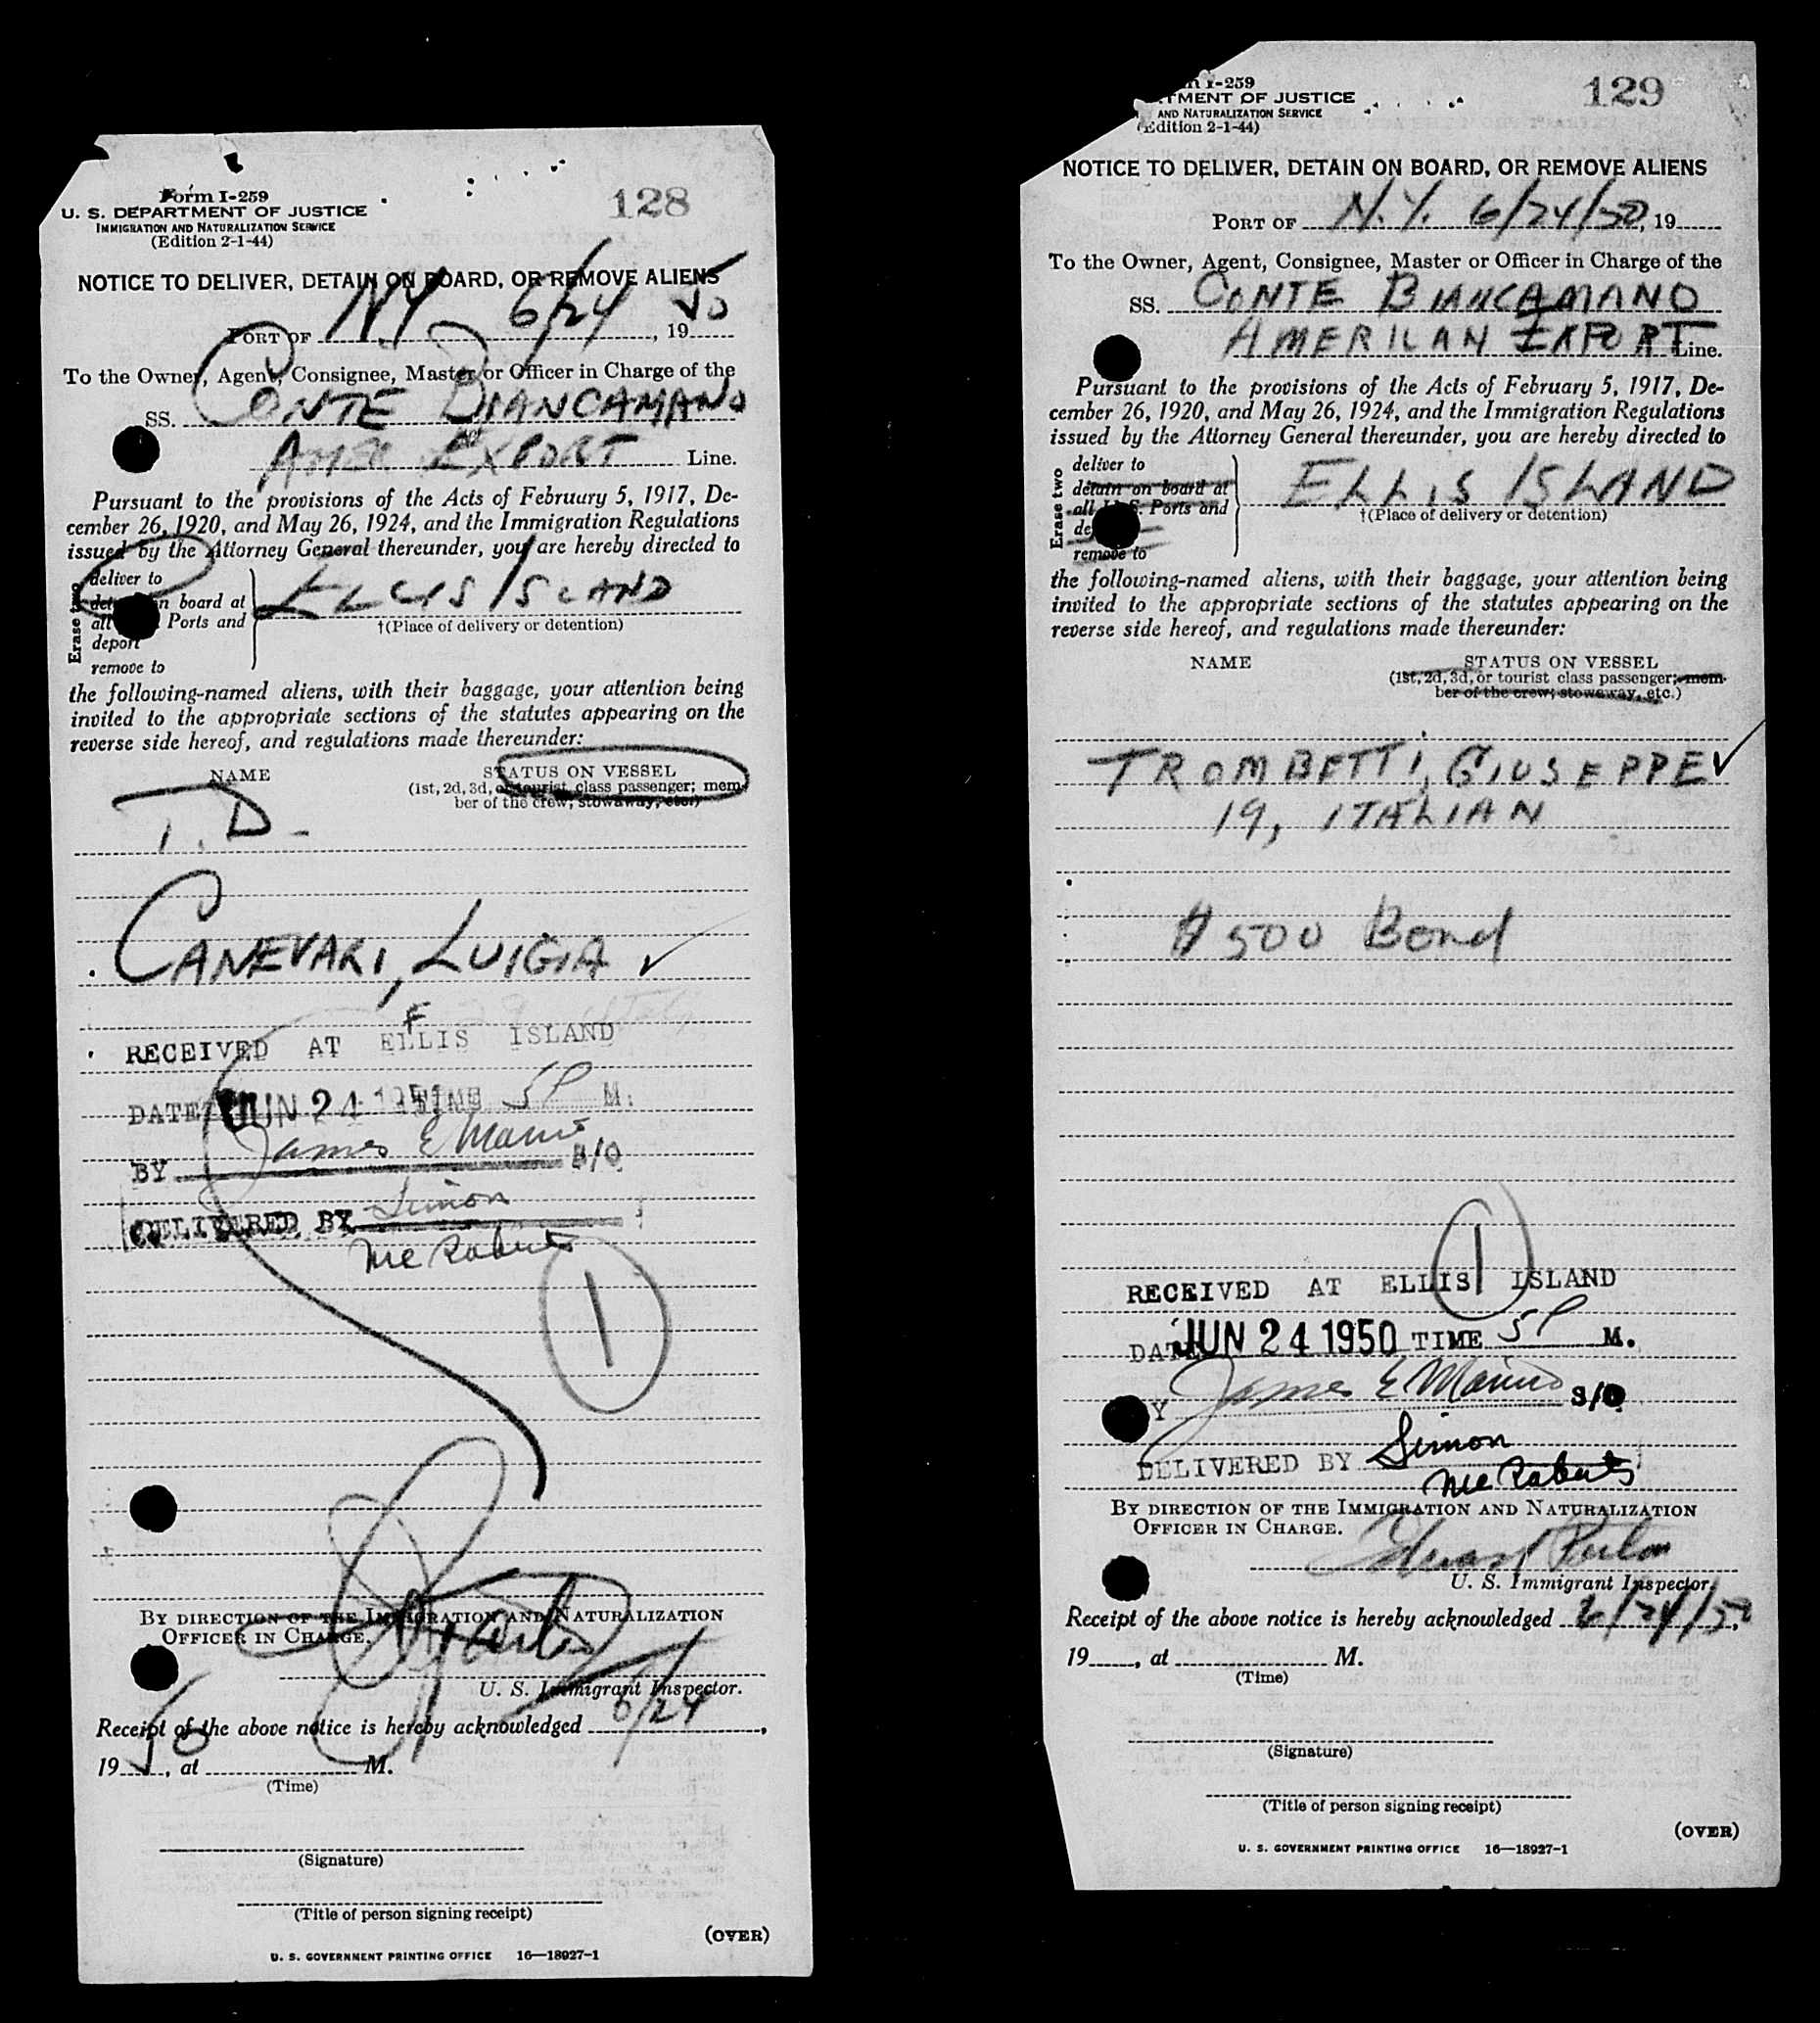 Form I-259
U. S. DEPARTMENT OF JUSTICE
IMMIGRATION AND NATURALIZATION SERVICE
(Edition 2-1-44)
128
NOTICE TO DELIVER, DETAIN ON BOARD, OR REMOVE ALIENS
PORT OF N.Y. 6/24, 19 50
To the Owner, Agent, Consignee, Master or Officer in Charge of the
SS. CONTE BIANCAMANO
AMER EXPORT Line.
Pursuant to the provisions of the Acts of February 5, 1917, De-
cember 26, 1920, and May 26, 1924, and the Immigration Regulations
issued by the Attorney General thereunder, you are hereby directed to
Erase two
deliver to
on board at
all Ports and
deport
remove to
ELLIS ISLAND
†(Place of delivery or detention)
the following-named aliens, with their baggage, your attention being
invited to the appropriate sections of the statutes appearing on the
reverse side hereof, and regulations made thereunder:
NAME
STATUS ON VESSEL
(1st, 2d, 3d, or tourist class passenger; mem-
ber of the crew; stowaway, etc.)
T.D-
CANEVARI, LUIGIA ✓
F
RECEIVED AT ELLIS ISLAND
DATE JUN 24 TIME 5P M.
BY James E S/O
DELIVERED BY Simon
McRoberts
1
BY DIRECTION OF THE IMMIGRATION AND NATURALIZATION
OFFICER IN CHARGE.
U. S. Immigrant Inspector.
Receipt of the above notice is hereby acknowledged 6/24,
19 50, at M.
(Time)
(Signature)
(Title of person signing receipt)
(OVER)
U. S. GOVERNMENT PRINTING OFFICE 16—18927-1
I-259
TMENT OF JUSTICE
AND NATURALIZATION SERVICE
(Edition 2-1-44)
129
NOTICE TO DELIVER, DETAIN ON BOARD, OR REMOVE ALIENS
PORT OF N.Y. 6/24/50, 19
To the Owner, Agent, Consignee, Master or Officer in Charge of the
SS. CONTE BIANCAMANO
AMERICAN EXPORT Line.
Pursuant to the provisions of the Acts of February 5, 1917, De-
cember 26, 1920, and May 26, 1924, and the Immigration Regulations
issued by the Attorney General thereunder, you are hereby directed to
Erase two
deliver to
detain on board at
all U.S. Ports and
de
remove to
ELLIS ISLAND
†(Place of delivery or detention)
the following-named aliens, with their baggage, your attention being
invited to the appropriate sections of the statutes appearing on the
reverse side hereof, and regulations made thereunder:
NAME
STATUS ON VESSEL
(1st, 2d, 3d, or tourist class passenger; mem-
ber of the crew; stowaway, etc.)
TROMBETTI, GIUSEPPE ✓
19, ITALIAN
$500 Bond
1
RECEIVED AT ELLIS ISLAND
DATE JUN 24 1950 TIME 5P M.
Y James E S/O
DELIVERED BY Simon
McRoberts
BY DIRECTION OF THE IMMIGRATION AND NATURALIZATION
OFFICER IN CHARGE.
U. S. Immigrant Inspector.
Receipt of the above notice is hereby acknowledged 6/24/50,
19, at M.
(Time)
(Signature)
(Title of person signing receipt)
(OVER)
U. S. GOVERNMENT PRINTING OFFICE 16—18927-1